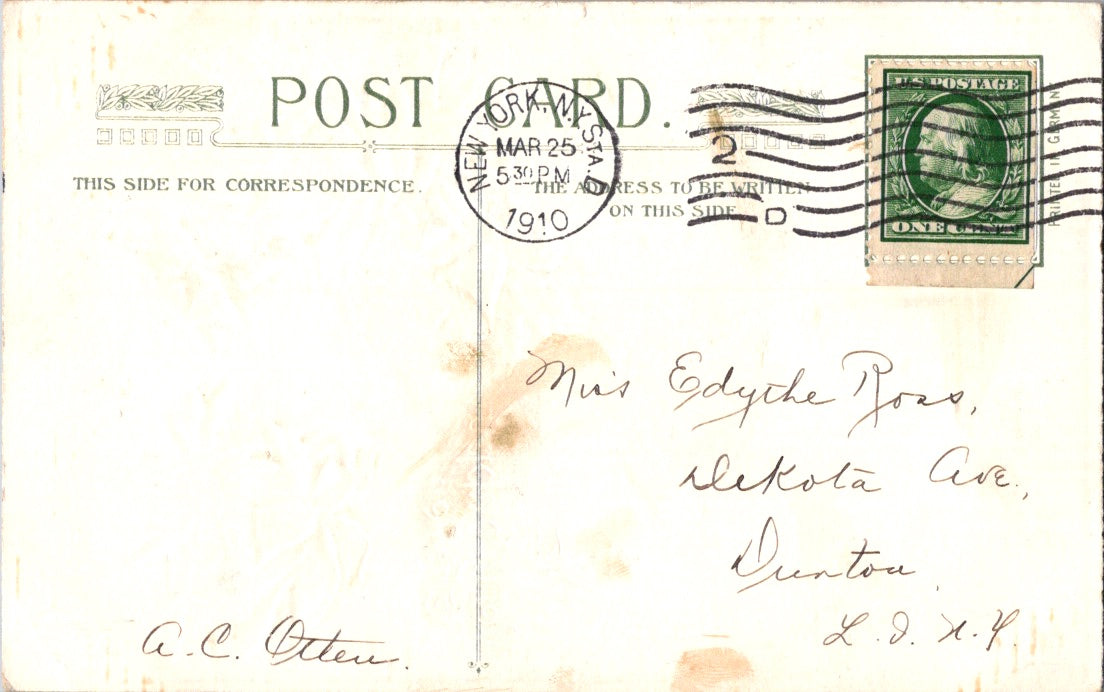 POST CARD.
THIS SIDE FOR CORRESPONDENCE.
THE ADDRESS TO BE WRITTEN
ON THIS SIDE
NEW YORK, N.Y. STA. D
MAR 25
5 30 PM
1910
2
D
U.S. POSTAGE
ONE CENT
PRINTED IN GERMANY
Miss Edythe Ross,
Dekota Ave.,
Dunton
L. I. N. Y.
A. C. Otten.